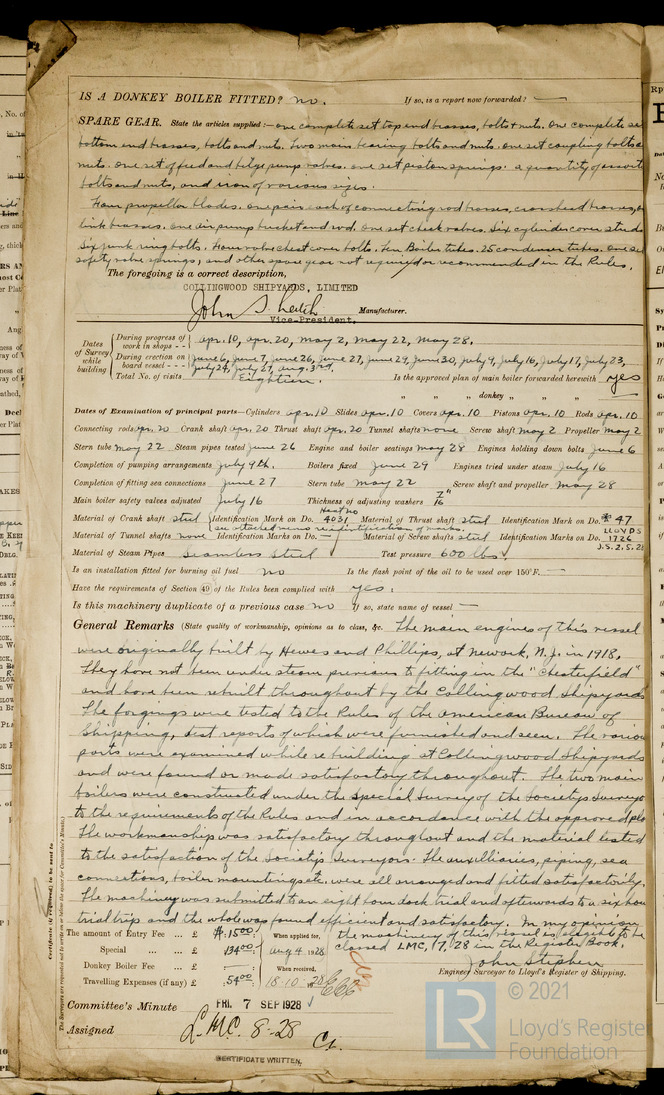 IS A DONKEY BOILER FITTED? no. If so, is a report now forwarded? —
SPARE GEAR. State the articles supplied:— one complete set top end brasses, bolts & nuts. One complete se
bottom end brasses, bolts and nuts. Two main bearing bolts and nuts. one set coupling bolts a
nuts. one set of feed and bilge pump valves. one set piston springs. a quantity of assort
bolts and nuts, and iron of various sizes.
Four propeller blades. one pair each of connecting rod brasses, crosshead brasses, a
link brasses. one air pump bucket and rod. one set check valves. Six cylinder cover studs
Six junk ring bolts. Four valve chest cover bolts. Ten Boiler tubes. 25 condenser tubes. one se
safety valve springs, and other spare gear not required or recommended in the Rules.
The foregoing is a correct description,
COLLINGWOOD SHIPYARDS, LIMITED
John S. Leitch Manufacturer.
Vice-President.
Dates of Survey while building
During progress of work in shops - - apr. 10, apr. 20, may 2, may 22, may 28.
During erection on board vessel - - - june 6, june 7, june 26, june 27, june 29, june 30, july 9, july 16, july 17, july 23,
july 24, july 27, aug. 3rd.
Total No. of visits Eighteen. Is the approved plan of main boiler forwarded herewith yes
" " " donkey " " "
Dates of Examination of principal parts—Cylinders apr. 10 Slides apr. 10 Covers apr. 10 Pistons apr. 10 Rods apr. 10
Connecting rods apr. 20 Crank shaft apr. 20 Thrust shaft apr. 20 Tunnel shafts none Screw shaft may 2 Propeller may 2
Stern tube may 22 Steam pipes tested june 26 Engine and boiler seatings may 28 Engines holding down bolts june 6
Completion of pumping arrangements july 9th. Boilers fixed june 29 Engines tried under steam july 16
Completion of fitting sea connections june 27 Stern tube may 22 Screw shaft and propeller may 28
Main boiler safety valves adjusted july 16 Thickness of adjusting washers 7/16"
Material of Crank shaft steel Identification Mark on Do. Heat No 4031 Material of Thrust shaft steel Identification Mark on Do. # 47
Material of Tunnel shafts none Identification Marks on Do. — Material of Screw shafts steel Identification Marks on Do. LLOYDS 1726
J.S. 2.5.28
Material of Steam Pipes Seamless Steel Test pressure 600 lbs
Is an installation fitted for burning oil fuel no Is the flash point of the oil to be used over 150°F. —
Have the requirements of Section 49 of the Rules been complied with yes.
Is this machinery duplicate of a previous case no If so, state name of vessel —
General Remarks (State quality of workmanship, opinions as to class, &c. The main engines of this vessel
were originally built by Hewes and Phillips, at Newark, N.J. in 1918.
They have not been under steam previous to fitting in the "Chesterfield"
and have been rebuilt throughout by the Collingwood Shipyards
The forgings were tested to the Rules of the American Bureau of
Shipping, test reports of which were furnished and seen. The variou
parts were examined while rebuilding at Collingwood Shipyards
and were found or made satisfactory throughout. The two main
boilers were constructed under the Special Survey of the Society's Surveyo
to the requirements of the Rules and in accordance with the approved pla
The workmanship was satisfactory throughout and the material tested
to the satisfaction of the Society's Surveyors. The auxilliaries, piping, sea
connections, boiler mountings etc. were all arranged and fitted satisfactorily.
The machinery was submitted to an eight hour dock trial and afterwards to a six hou
trial trip and the whole was found efficient and satisfactory. In my opinion
the machinery of this vessel is eligible to be
classed LMC, 7,28 in the Register Book.
The amount of Entry Fee ... £ $ 15.00 When applied for,
Special ... £ 134.00 Aug 4 1928
Donkey Boiler Fee ... £ When received,
Travelling Expenses (if any) £ 54.00 18.10.28
John Stephen
Engineer Surveyor to Lloyd's Register of Shipping.
Committee's Minute FRI. 7 SEP 1928
Assigned L.M.C. 8-28
CERTIFICATE WRITTEN.
Certificate (if required) to be sent to
(The Surveyors are requested not to write on or below the space for Committee's Minute.)
© 2021
LR
Lloyd's Register
Foundation